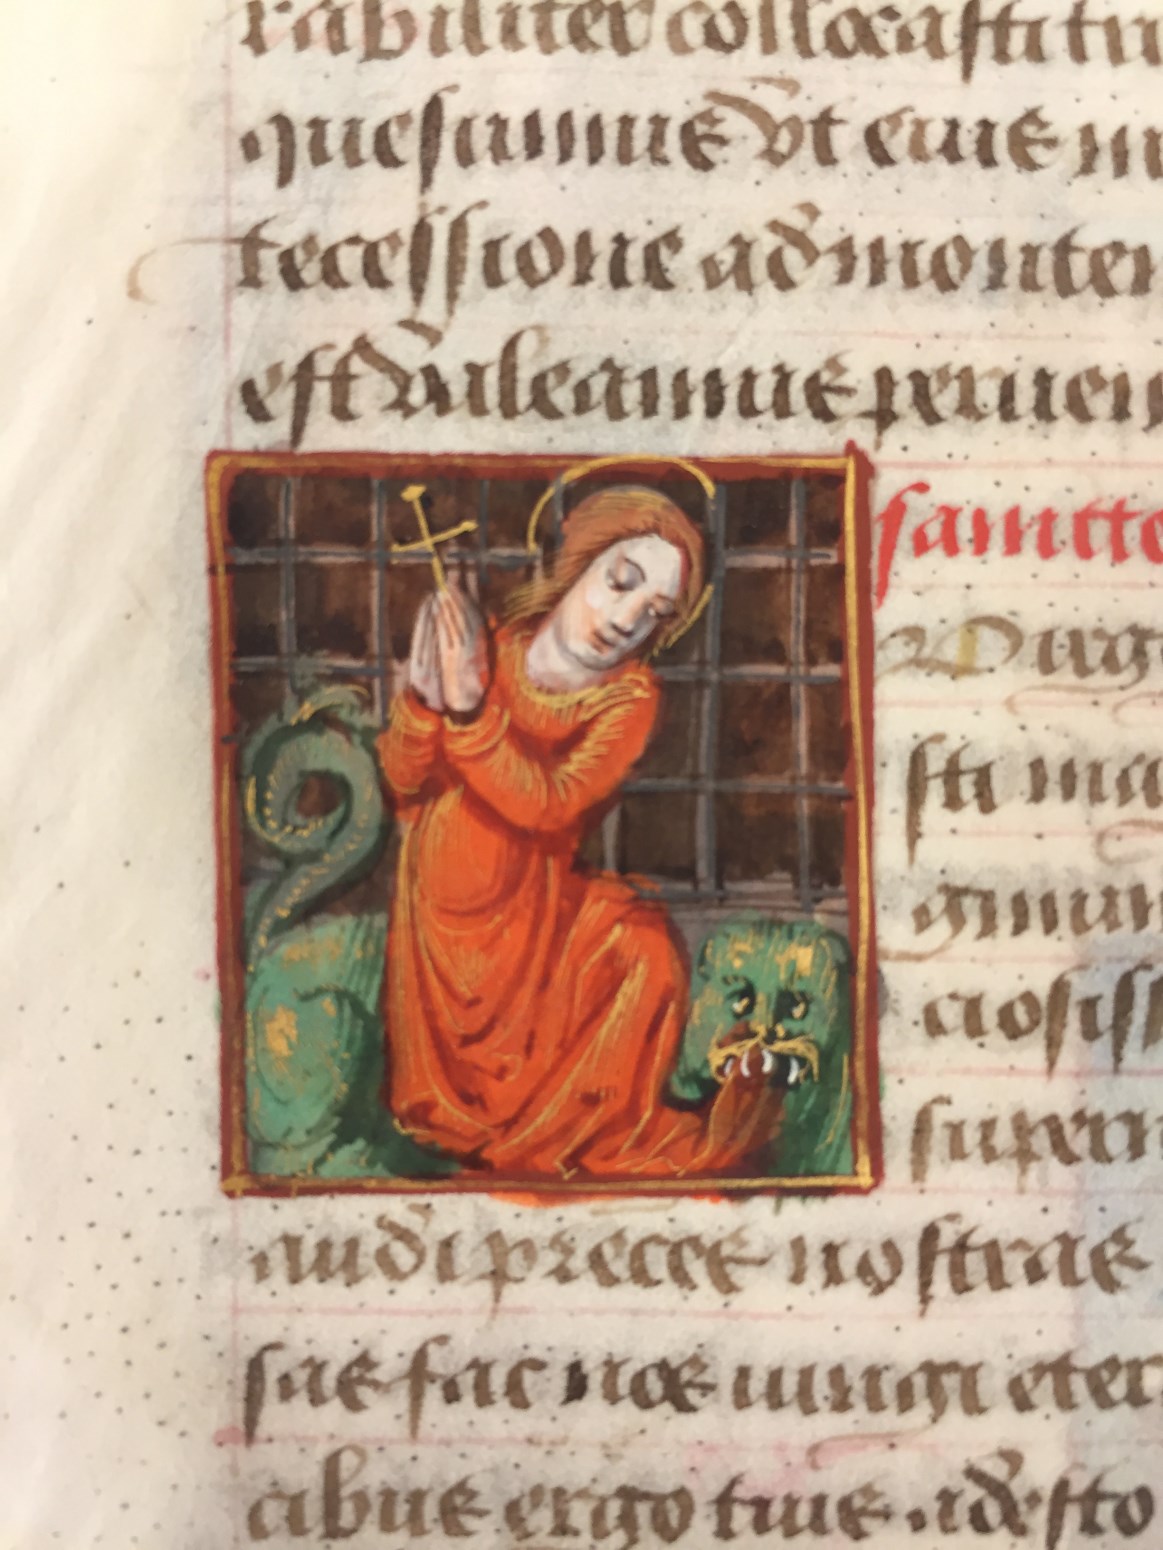 rabiliter collocasti tu
quesumus vt eius in
tercessione ad montem
est valeamus perueni
sancte
Virg
sti ma
gnum
ciosiss
supern
audi preces nostras
sas fac nos iungi eter
cibus ergo tuis adesto